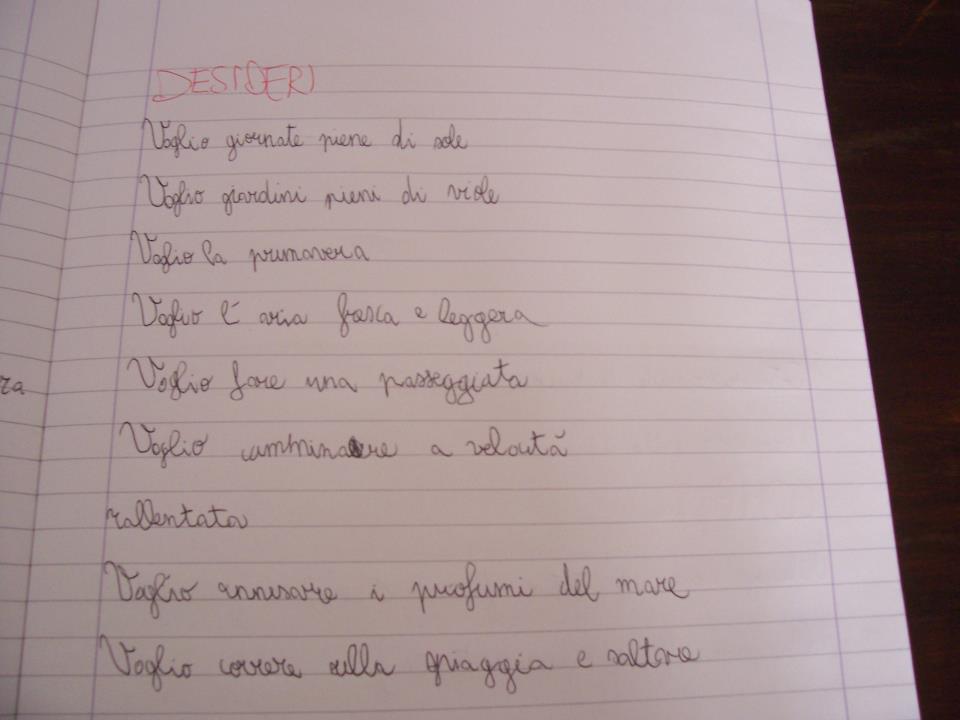 DESIDERI
Voglio giornate piene di sole
Voglio giardini pieni di viole
Voglio la primavera
Voglio l'aria fresca e leggera
Voglio fare una passeggiata
ra Voglio camminare a velocità
rallentata
Voglio annusare i profumi del mare
Voglio correre sulla spiaggia e saltare